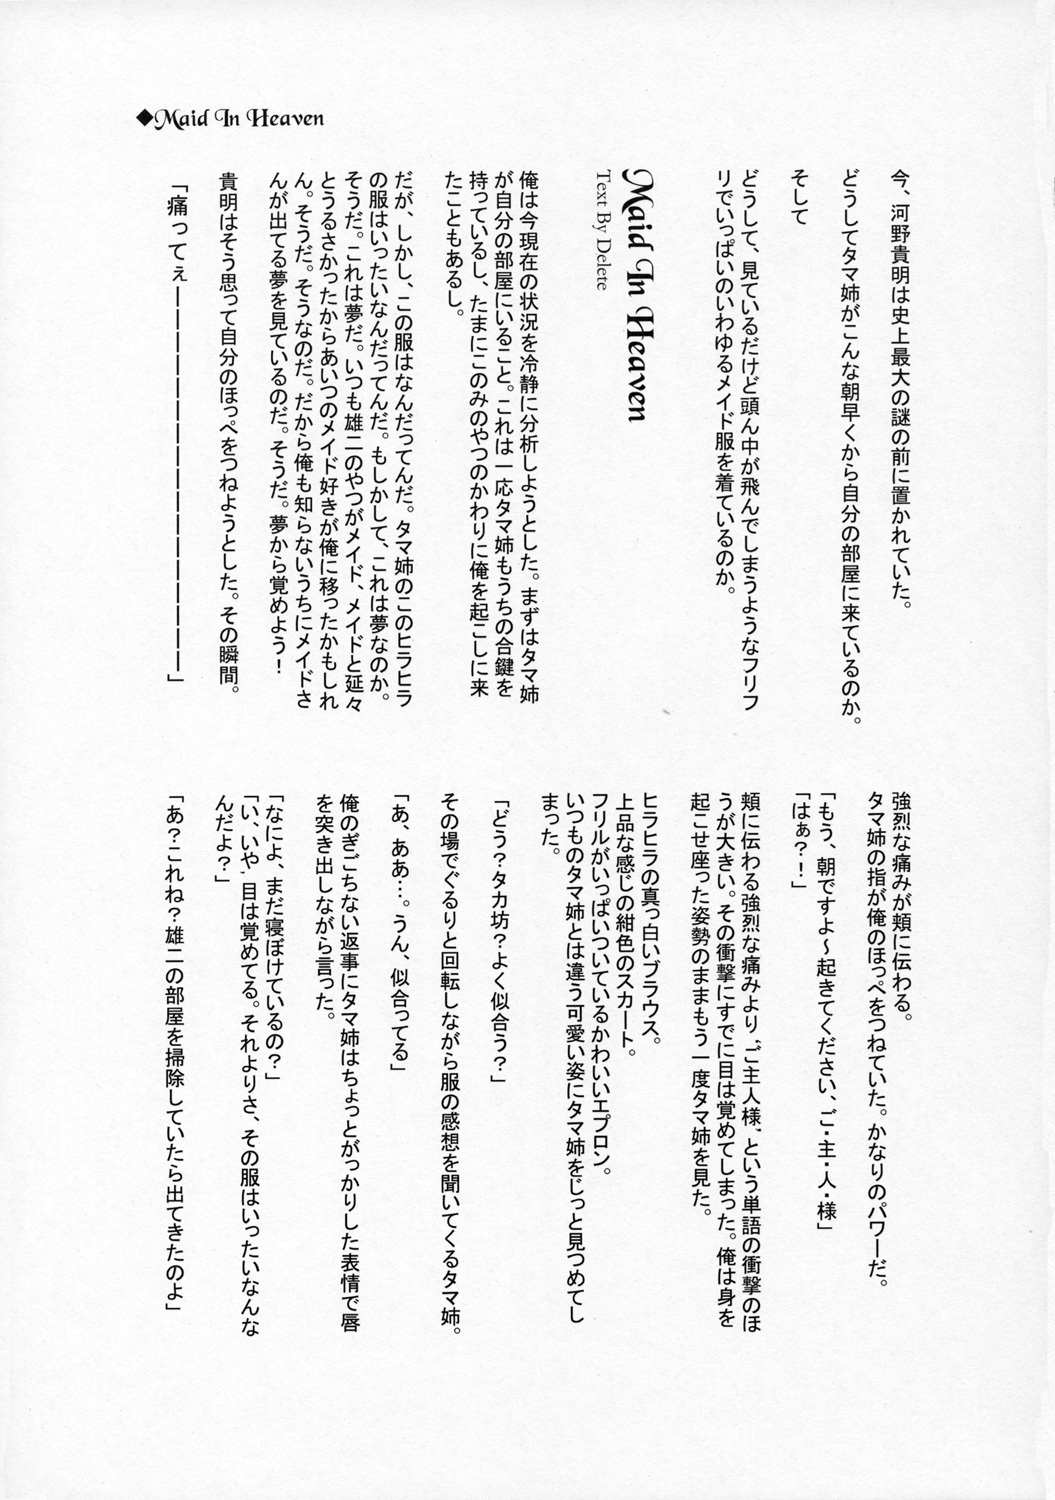 ◆Maid In Heaven
今、河野貴明は史上最大の謎の前に置かれていた。
どうしてタマ姉がこんな朝早くから自分の部屋に来ているのか。
そして
どうして、見ているだけど頭ん中が飛んでしまうようなフリフ
リでいっぱいのいわゆるメイド服を着ているのか。
Maid In Heaven
Text By Delete
俺は今現在の状況を冷静に分析しようとした。まずはタマ姉
が自分の部屋にいること。これは一応タマ姉もうちの合鍵を
持っているし、たまにこのみのやつのかわりに俺を起こしに来
たこともあるし。
だが、しかし、この服はなんだってんだ。タマ姉のこのヒラヒラ
の服はいったいなんだってんだ。もしかして、これは夢なのか。
そうだ。これは夢だ。いつも雄二のやつがメイド、メイドと延々
とうるさかったからあいつのメイド好きが俺に移ったかもしれ
ん。そうだ。そうなのだ。だから俺も知らないうちにメイドさ
んが出てる夢を見ているのだ。そうだ。夢から覚めよう！
貴明はそう思って自分のほっぺをつねようとした。その瞬間。
「痛ってぇーーーーーーーーーーーーーーーー」
強烈な痛みが頬に伝わる。
タマ姉の指が俺のほっぺをつねていた。かなりのパワーだ。
「もう、朝ですよ～起きてください、ご・主・人・様」
「はぁ？！」
頬に伝わる強烈な痛みより、'ご主人様'、という単語の衝撃のほ
うが大きい。その衝撃にすでに目は覚めてしまった。俺は身を
起こせ座った姿勢のままもう一度タマ姉を見た。
ヒラヒラの真っ白いブラウス。
上品な感じの紺色のスカート。
フリルがいっぱいついているかわいいエプロン。
いつものタマ姉とは違う可愛い姿にタマ姉をじっと見つめてし
まった。
「どう？タカ坊？よく似合う？」
その場でぐるりと回転しながら服の感想を聞いてくるタマ姉。
「あ、ああ…。うん、似合ってる」
俺のぎごちない返事にタマ姉はちょっとがっかりした表情で唇
を突き出しながら言った。
「なによ、まだ寝ぼけているの？」
「い、いや、目は覚めてる。それよりさ、その服はいったいなんな
んだよ？」
「あ？これね？雄二の部屋を掃除していたら出てきたのよ」